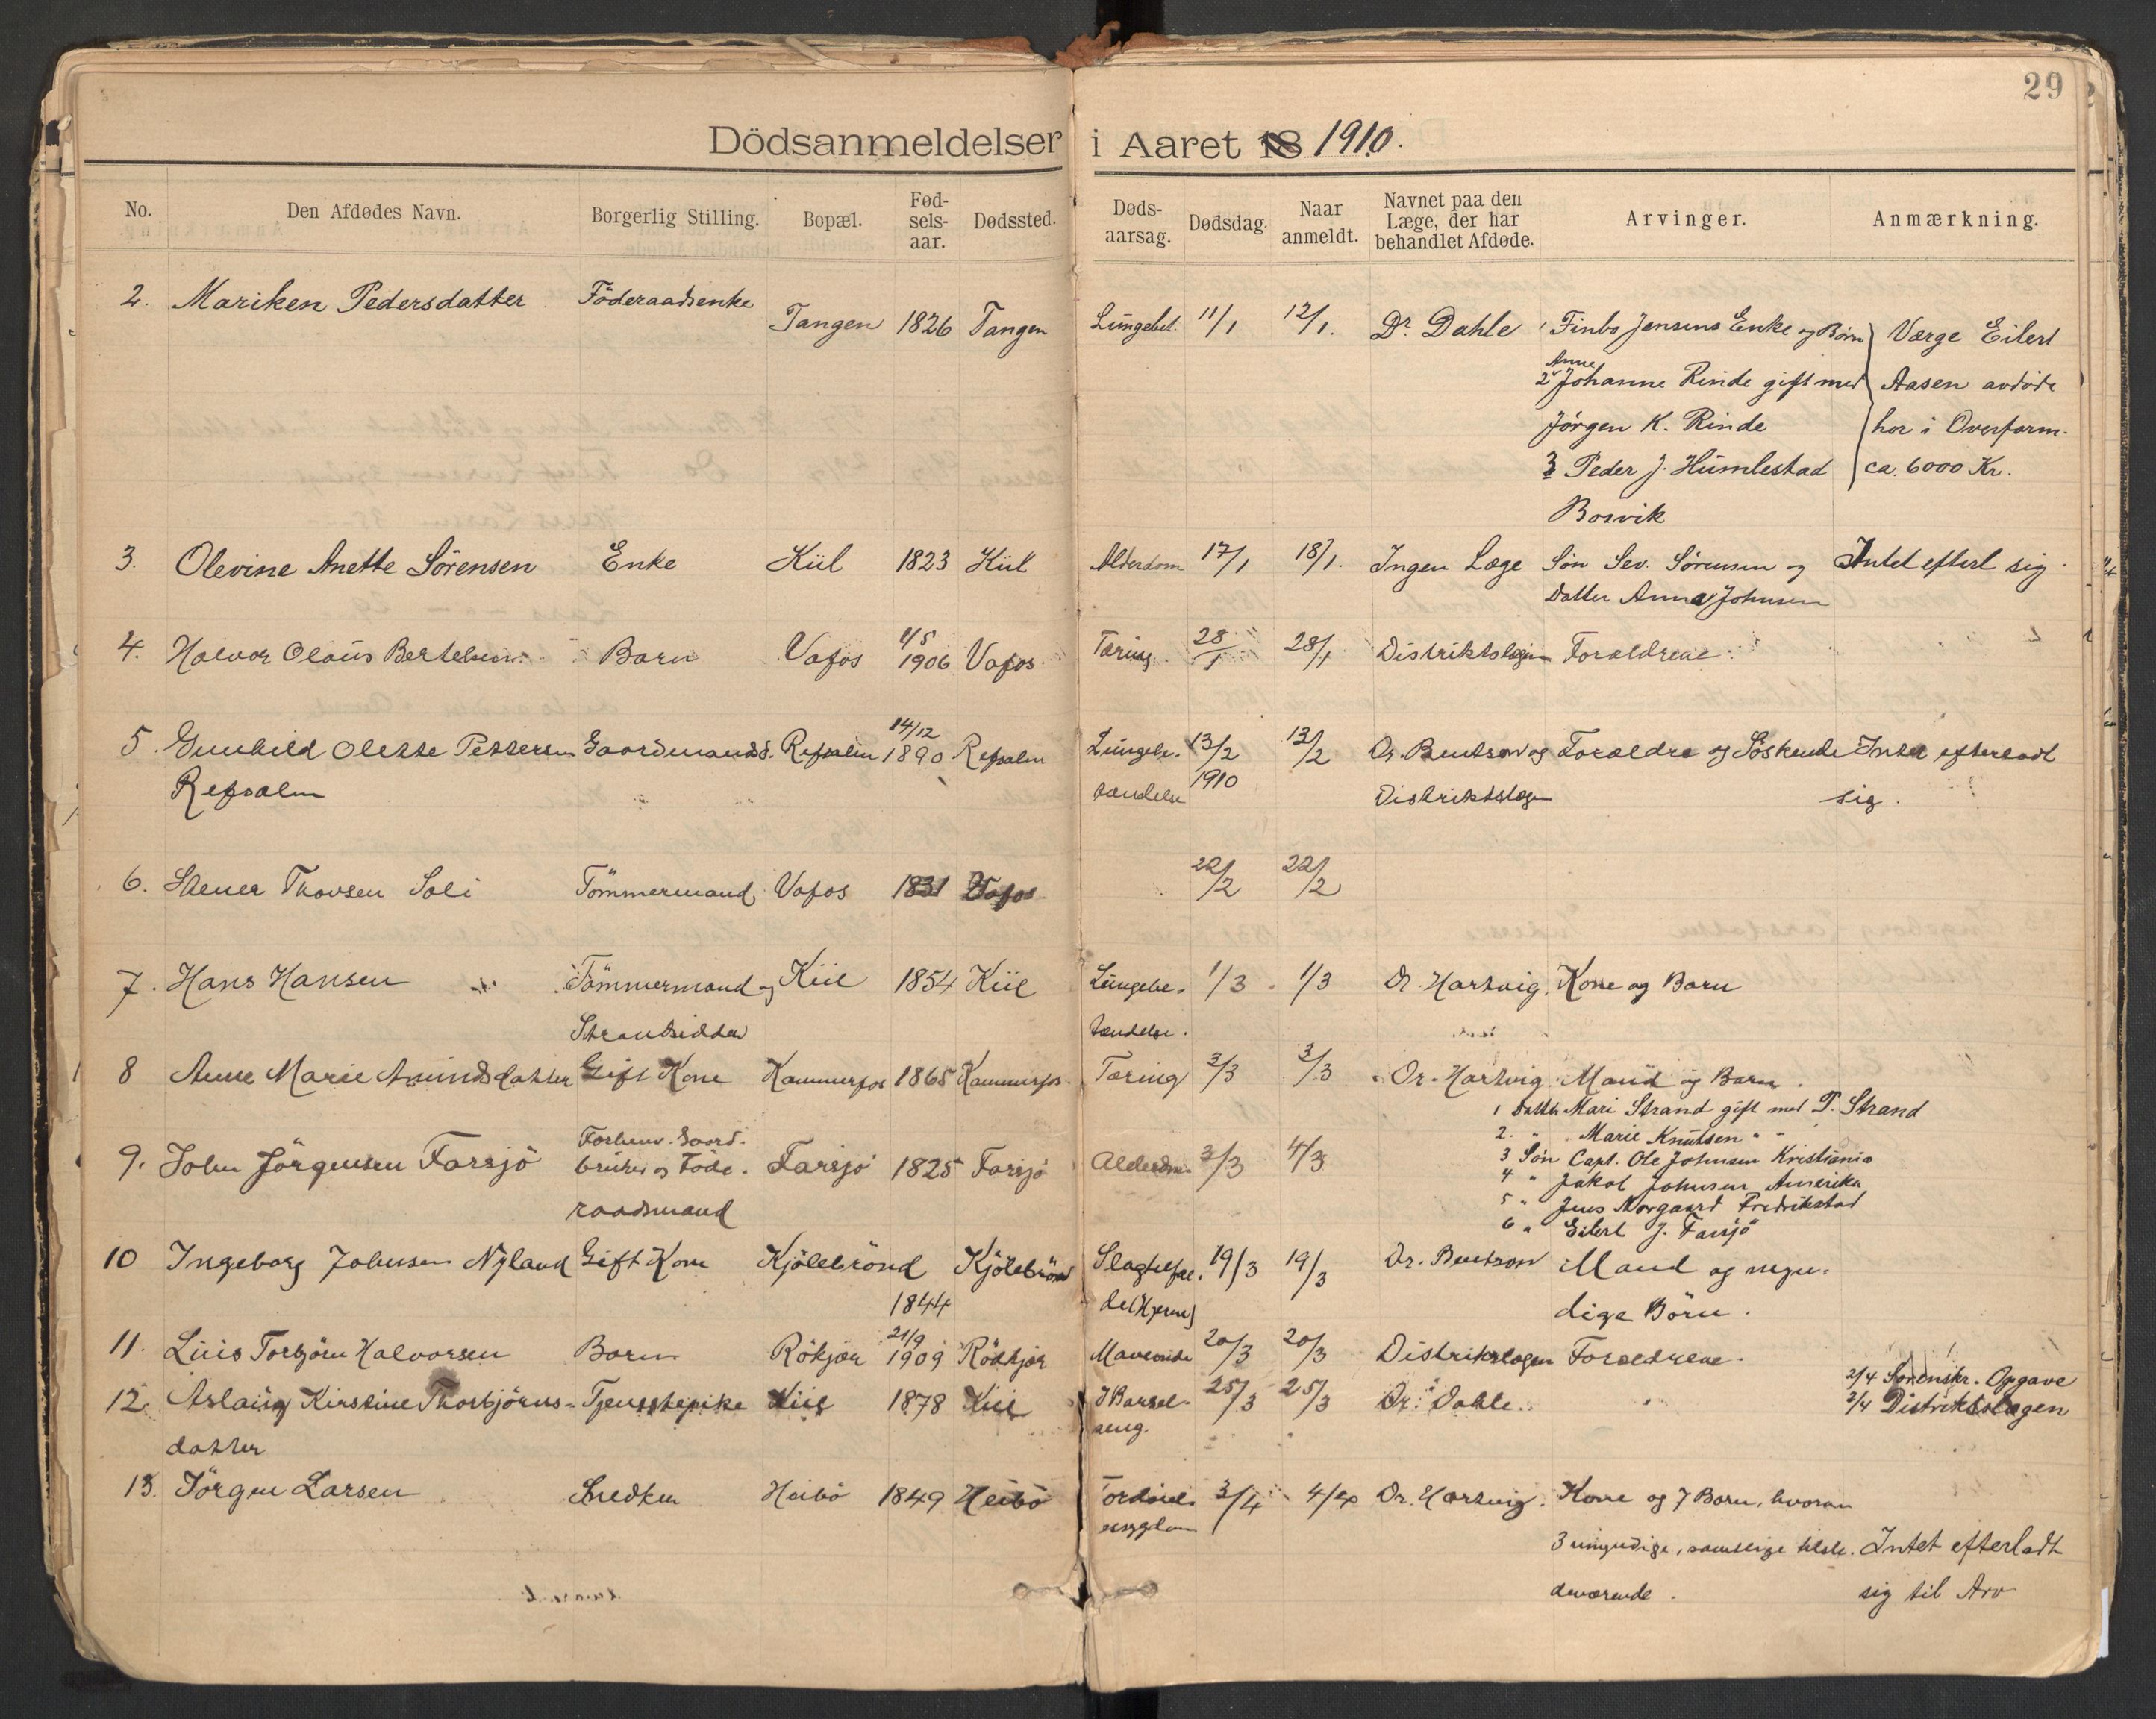 29
Dödsanmeldelser i Aaret 18 1910.
No. Den Afdødes Navn. Borgerlig Stilling. Bopæl. Fød-sels-aar. Dødssted. Døds-aarsag. Dødsdag. Naar anmeldt. Navnet paa den Læge, der har behandlet Afdøde. Arvinger. Anmærkning.
2. Mariken Pedersdatter Föderaadsenke Tangen 1826 Tangen Lungebet. 11/1 12/1. Dr. Dahle 1 Finbo Jensens Enke og Børn Værge Eilert
Anne
2 Johanne Rinde gift med Aasen avdøde
Jörgen K. Rinde har i Overform.
3 Peder J. Humlestad ca. 6000 Kr.
Bosvik
3. Olevine Anette Sörensen Enke Kiil 1823 Kiil Alderdom 17/1 18/1. Ingen Læge Søn Sev. Sørensen og Intet efterl sig.
Datter Anna Johnsen
4. Halvor Olaus Bertelsen Barn Vafos 4/5 1906 Vafos Tæring 28/1 28/1 Distriktslægen Forældrene
5. Gunhild Olette Pettersen Gaardmandsd. Refsalen 14/12 1890 Refsalen Lungebe- 13/2 13/2 Dr. Bentson og Forældre og Söskende Intet efterladt
Refsalen tændelse 1910 Distriktslægen sig.
6. Thovsen Soli Tömmermand Vafos 1831 Vafos 22/2 22/2
7. Hans Hansen Tömmermand og Kiil 1854 Kiil Lungebe- 1/3 1/3 Dr. Hartvig Kone og Barn
Strandsidder tændelse.
8 Anne Marie Amundsdatter Gift Kone Kammerfos 1865 Kammerfos Tæring 3/3 3/3 Dr. Hartvig Mand og Barn.
1 Datter Mari Strand gift med P. Strand
2. " Marie Knutsen " "
Forhenv. Gaard-
9. John Jörgensen Farsjö bruker og Föde- Farsjö 1825 Farsjö Alderdom 3/3 4/3 3 Søn Capt. Ole Johnsen Kristiania
4 " Jakob Johnsen Amerika
raadsmand 5 " Jens Norgaard Fredrikstad
6 " Eilert J. Farsjö
10 Ingeborg Johnsen Nyland Gift Kone Kjölebrönd Kjölebrönd Slagtilfæl- 19/3 19/3 Dr. Bentson Mand og myn-
1844 de (Hjerne) dige Börn.
11. Luis Torbjörn Halvorsen Barn Rökjær 21/9 1909 Rökjær Mavesonde 20/3 20/3 Distriktslægen Forældrene.
2/4 Sorenskr. Opgave
12. Aslaug Kirstine Thorbjörns- Tjenestepike Kiil 1878 Kiil I Barsel- 25/3 25/3 Dr. Dahle. 2/4 Distriktslægen
datter seng.
13. Jörgen Larsen Snedker Heibö 1849 Heibö Fordöiel- 3/4 4/4 Dr. Hartvig. Kone og 7 Barn, hvorav
sessygdom 3 umyndige, samtlige tilste- Intet efterladt
deværende. sig til Arv